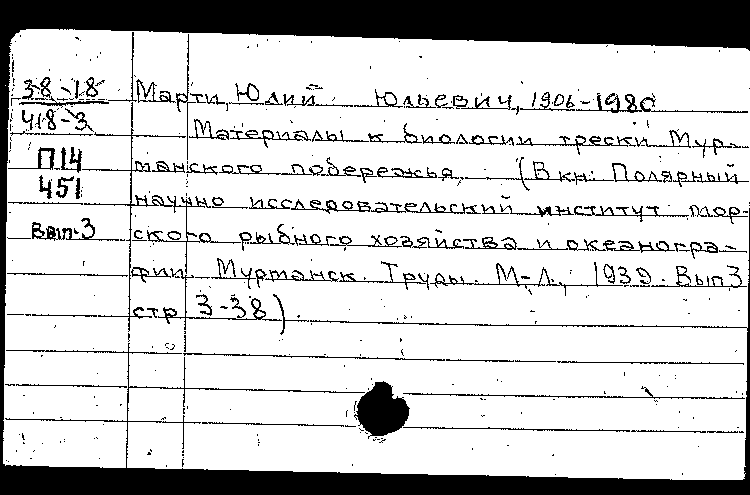 38-18
418-3
П14
451
Вып.3
Марти, Юлий Юльевич, 1906-1980
Материалы к биологии трески Мур-
манского побережья, (В кн: Полярный
научно исследовательский институт мор-
ского рыбного хозяйства и океаногра-
фии. Мурманск. Труды. М-Л., 1939. Вып 3
стр 3-38).